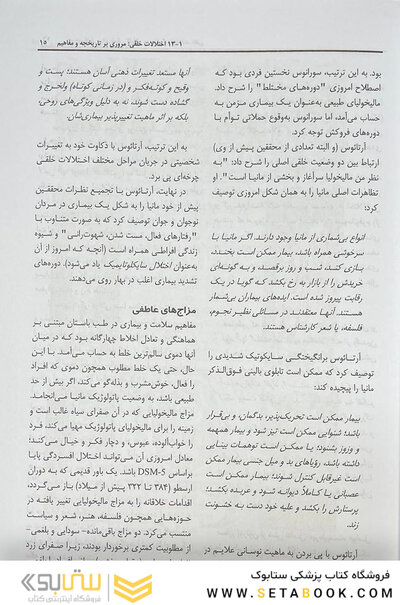 ۱۳-۱ اختلالات خلقی: مروری بر تاریخچه و مفاهیم ۱۵
بود. به این ترتیب، سورانوس نخستین فردی بود که
اصطلاح امروزی "دوره‌های مختلط" را شرح داد.
مالیخولیای طبیعی به‌عنوان یک بیماری مزمن به
حساب می‌آمد، اما سورانوس به‌وقوع حملاتی توأم با
دوره‌های فروکش توجه کرد.
آرتائوس (و البته تعدادی از محققین پیش از وی)
ارتباط بین دو وضعیت خلقی اصلی را شرح داد: "به
نظر من مالیخولیا سرآغاز و بخشی از مانیا است." او
تظاهرات اصلی مانیا را به همان شکل امروزی توصیف
کرد:
انواع بی‌شماری از مانیا وجود دارند. اگر مانیا با
سرخوشی همراه باشد، بیمار ممکن است بخندد،
بازی کند، شب و روز برقصد، و به گونه‌ای
خریدش را از بازار به رخ بکشد که گویا در یک
رقابت پیروز شده است. ایده‌های بیماران بی‌شمار
هستند. آنها معتقدند در مسائلی نظیر نجوم،
فلسفه، یا شعر کارشناس هستند.
آرتائوس برانگیختگی سایکوتیک شدیدی را
توصیف کرد که ممکن است تابلوی بالینی فوق‌الذکر
مانیا را پیچیده کند:
بیمار ممکن است تحریک‌پذیر، بدگمان، و بی‌قرار
باشد؛ شنوایی ممکن است تیز شود و همهمه
و وزوز بشنود؛ یا ممکن است توهمات بینایی
داشته باشد. رؤیاهای بد و میل جنسی بیمار ممکن
است غیرقابل کنترل شوند؛ بیمار ممکن است
عصبانی یا کاملاً دیوانه شود و عربده بکشد؛
پرستارش را بکشد و علیه خود دست به خشونت
زند.
آرتائوس با پی بردن به ماهیت نوسانی علایم در
آنها مستعد تغییرات ذهنی آسان هستند؛ پست و
وقیح و کوته‌فکر و (در زمانی کوتاه) ولخرج و
گشاده دست شوند، نه به دلیل ویژگی‌های روحی،
بلکه بر اثر ماهیت تغییرپذیر بیماری‌شان.
به این ترتیب، آرتائوس با ذکاوت خود به تغییرات
شخصیتی در جریان مراحل مختلف اختلالات خلقی
چرخه‌ای پی برد.
در نهایت، آرتائوس با تجمیع نظرات محققین
پیش از خود مانیا را به شکل یک بیماری در مردان
نوجوان و جوان توصیف کرد که به صورت متناوب با
"رفتارهای فعال، مست شدن، شهوت‌رانی" و شیوه
زندگی افراطی همراه است (آنچه که امروز از آن
به‌عنوان اختلال سایکلوتایمیک یاد می‌شود). دوره‌های
تشدید بیماری اغلب در بهار روی می‌دهند.
مزاج‌های عاطفی
مفاهیم سلامت و بیماری در طب باستان مبتنی بر
هماهنگی و تعادل اخلاط چهارگانه بود که در میان
آنها دموی سالم‌ترین خلط به حساب می‌آمد. با این
حال، حتی یک خلط مطلوب همچون دموی که افراد
را فعال، خوش‌مشرب و بذله‌گو می‌کند، اگر بیش از حد
طبیعی باشد، به وضعیت پاتولوژیک مانیا می‌انجامد.
مزاج مالیخولیایی که در آن صفرای سیاه غالب است و
زمینه را برای مالیخولیای پاتولوژیک مهیا می‌کند، فرد
را خواب‌آلوده، عبوس، و دچار فکر و خیال می‌کند؛
معادل امروزی آن می‌تواند اختلال افسردگی پایا
براساس DSM-5 باشد. یک باور قدیمی که به دوران
ارسطو (۳۸۴ تا ۳۲۲ پیش از میلاد) باز می‌گردد،
اقدامات خلاقانه را به مزاج مالیخولیایی تغییر یافته در
حوزه‌هایی همچون فلسفه، هنر، شعر و سیاست
منتسب می‌کرد. دو مزاج باقی‌مانده— سودایی و بلغمی—
از مطلوبیت کمتری برخوردار بودند، زیرا صفرای زرد
فروشگاه کتاب پزشکی ستابوک
WWW.SETABOOK.COM
ستابوک
فروشگاه اینترنتی کتاب